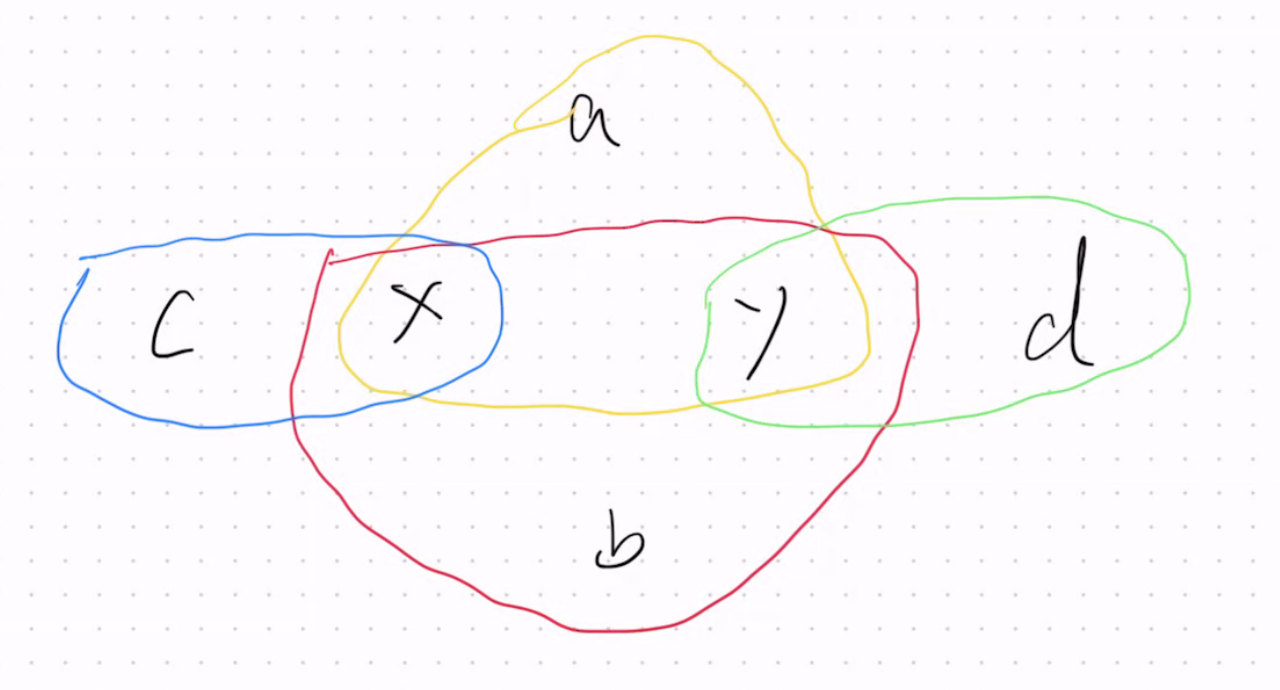 a
c x y d
b